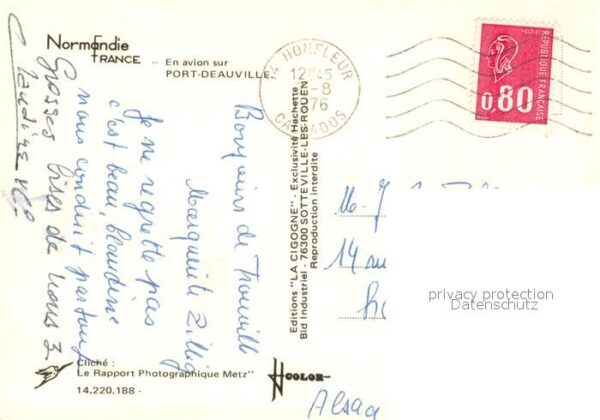 Normandie
FRANCE -
En avion sur
PORT-DEAUVILLE
14 HONFLEUR
12H45
-8
1976
CALVADOS
POSTES
REPUBLIQUE FRANÇAISE
0,80
Bonjours de Trouville
Marguerite Zillig
je ne regrette pas
c'est beau, Claudine
nous conduit partout
Grosses bises de nous 3
Claudine
Editions "LA CIGOGNE" - Exclusivité Hachette
Bld Industriel - 76300 SOTTEVILLE-LES-ROUEN
Reproduction interdite
M. J
14 rue
Alsac
privacy protection
Datenschutz
Cliché :
Le Rapport Photographique Metz"
14.220.188 -
COLOR